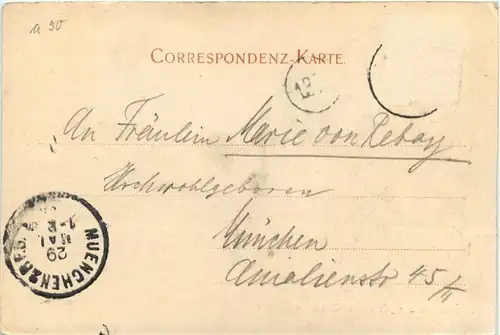 a 30
CORRESPONDENZ-KARTE.
An Fräulein Marie von Rebay
Hochwohlgeboren
München
Amalienstr 45/II
MUENCHEN 2 B.P.
29
MAI
1-2